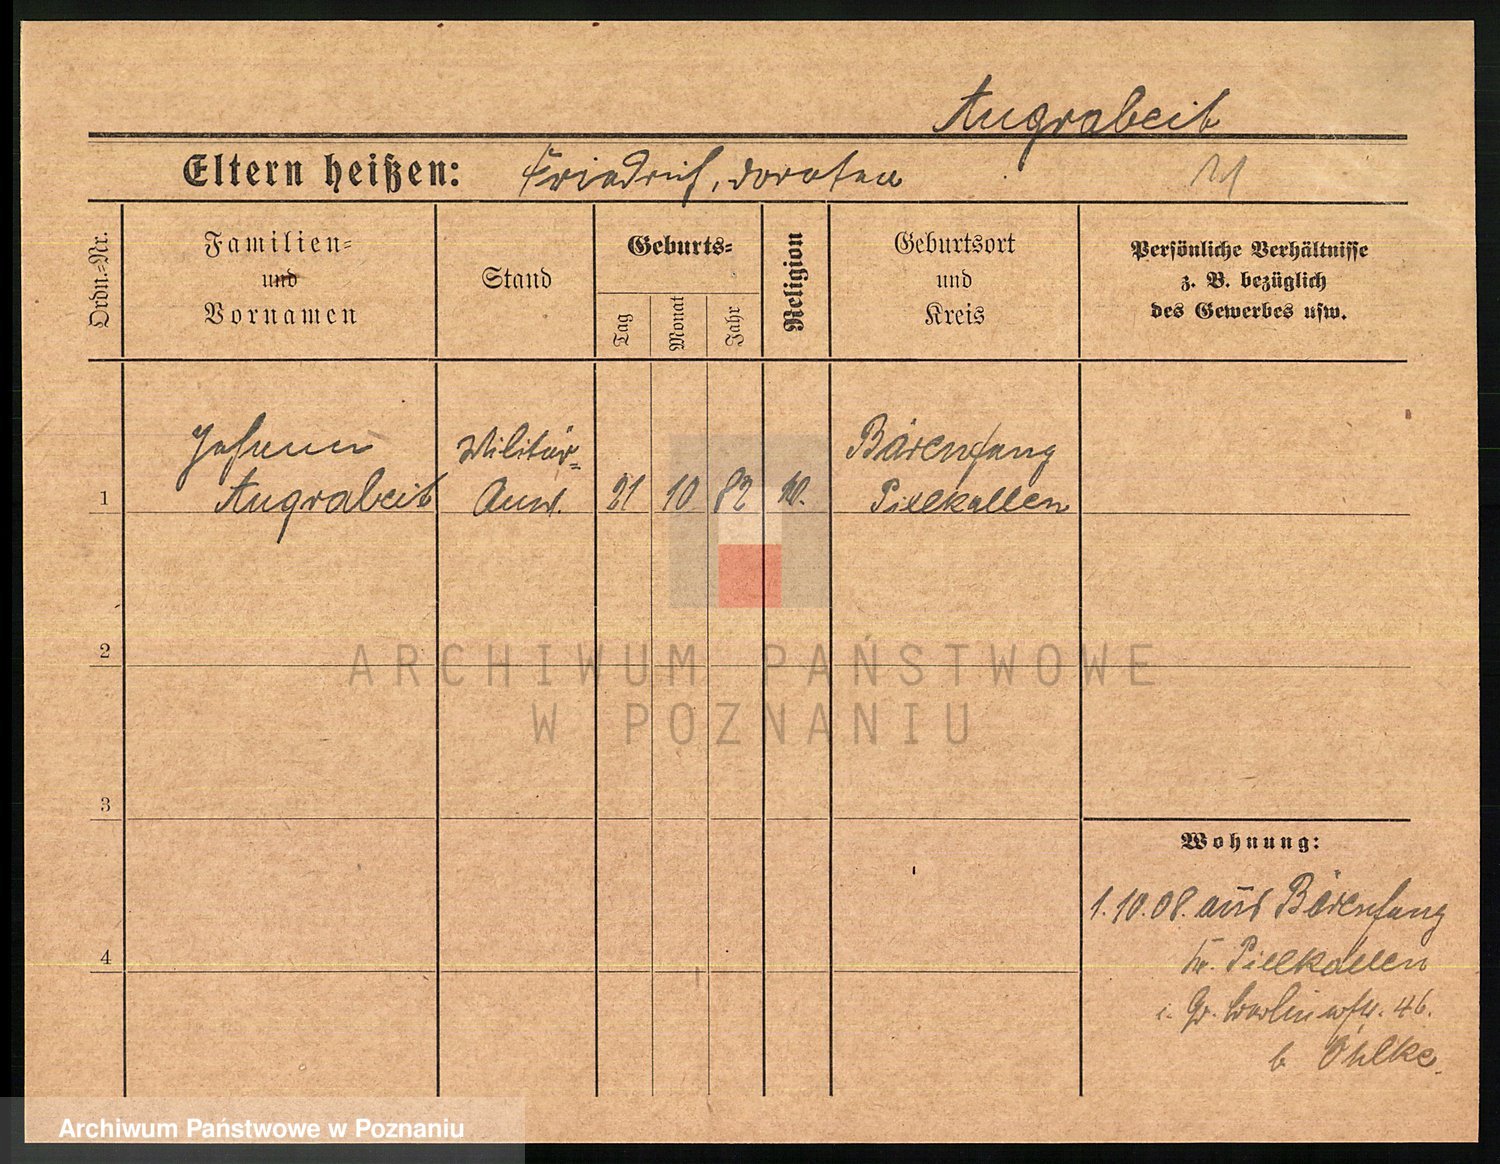 Angrabeit
Eltern heißen: Friedrich, Dorothea
21
Ordn.-Nr.
Familien-
und
Vornamen
Stand
Geburts-
Tag
Monat
Jahr
Religion
Geburtsort
und
Kreis
Persönliche Verhältnisse
z. B. bezüglich
des Gewerbes usw.
Johann Militär- Bärenfang
1 Angrabeit Anw. 21 10 82 Pillkallen
2
ARCHIWUM PAŃSTWOWE
W POZNANIU
3
Wohnung:
1.10.08. aus Bärenfang
4 Kr. Pillkallen
i. Gr. Berlinerstr. 46.
b Öhlke.
Archiwum Państwowe w Poznaniu